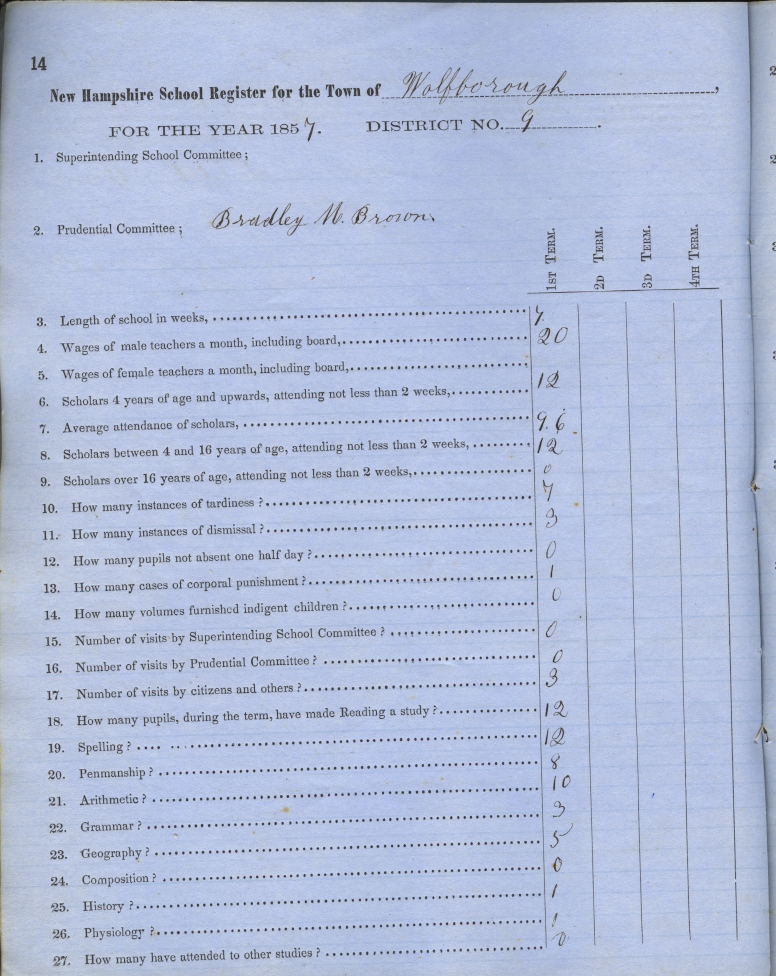 14
New Hampshire School Register for the Town of Wolfborough,
FOR THE YEAR 1857. DISTRICT NO. 9.
1. Superintending School Committee;
2. Prudential Committee; Bradley M. Brown.
1ST TERM. 2D TERM. 3D TERM. 4TH TERM.
3. Length of school in weeks, 7.
4. Wages of male teachers a month, including board, 20
5. Wages of female teachers a month, including board,
6. Scholars 4 years of age and upwards, attending not less than 2 weeks, 12
7. Average attendance of scholars, 9.6
8. Scholars between 4 and 16 years of age, attending not less than 2 weeks, 12
9. Scholars over 16 years of age, attending not less than 2 weeks, 0
10. How many instances of tardiness? 7
11. How many instances of dismissal? 3
12. How many pupils not absent one half day? 0
13. How many cases of corporal punishment? 1
14. How many volumes furnished indigent children? 0
15. Number of visits by Superintending School Committee? 0
16. Number of visits by Prudential Committee? 0
17. Number of visits by citizens and others? 3
18. How many pupils, during the term, have made Reading a study? 12
19. Spelling? 12
20. Penmanship? 8
21. Arithmetic? 10
22. Grammar? 3
23. Geography? 5
24. Composition? 0
25. History? 1
26. Physiology? 1
27. How many have attended to other studies? 0